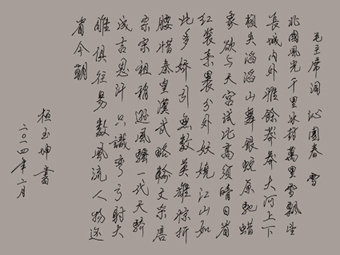 毛主席詞 沁園春 雪
北國風光千里冰封萬里雪飄望
長城內外惟餘莽莽大河上下
頓失滔滔山舞銀蛇原馳蠟
象欲与天公試比高須晴日看
紅裝素裹分外妖嬈江山如
此多嬌引無數英雄競折
腰惜秦皇漢武略輸文采唐
宗宋祖稍遜風騷一代天驕
成吉思汗只識彎弓射大
雕俱往矣數風流人物還
看今朝
玉坤書
二〇一四年二月